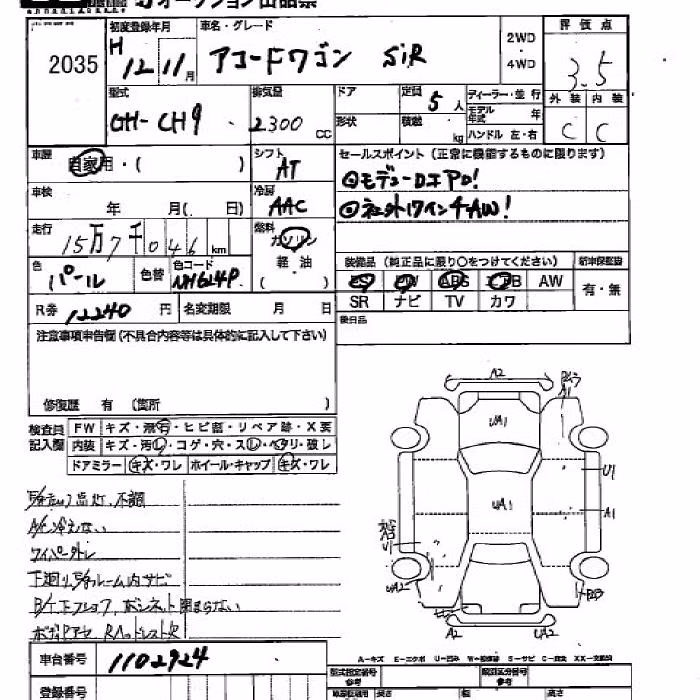 オークション出品票
2035
初度登録年月 H 12 11月
車名・グレード アコードワゴン SiR
2WD・4WD
評価点 3.5
型式 GH-CH9
排気量 2300 CC
ドア 形状
定員 5人
積載 kg
ディーラー・並行
モデル年式 年
ハンドル 左・右
外装 内装
C C
車歴 自家用・( )
シフト AT
セールスポイント (正常に機能するものに限ります)
◎モデューロエアロ!
◎社外17インチAW!
車検 年 月( 日)
冷房 AAC
走行 15万7千046 km
燃料 ガソリン 軽・油 ( )
色 パール
色替
色コード NH624P
装備品 (純正品に限り○をつけてください)
新車保証書
有・無
SR PW ABS エアB AW
SR ナビ TV カワ
R券 12240円
名変期限 月 日
後日品
注意事項申告欄(不具合内容等は具体的に記入して下さい)
修復歴 有 (箇所 )
検査員記入欄
FW キズ・飛石・ヒビ割・リペア跡・X要
内装 キズ・汚レ・コゲ・穴・スレ・ヘタリ・破レ
ドアミラー キズ・ワレ ホイール・キャップ キズ・ワレ
A/C冷えない
ワイパー外レ
A2
UA1
A1
U1
UA1
A1
U1
UA2
A2
UA2
車台番号 1102924
A-キズ E-エクボ U-凹み W-補修跡 S-サビ C-腐食 XX-交換済
登録番号
型式指定番号 参考
類別区分番号 参考
長さ 幅 高さ